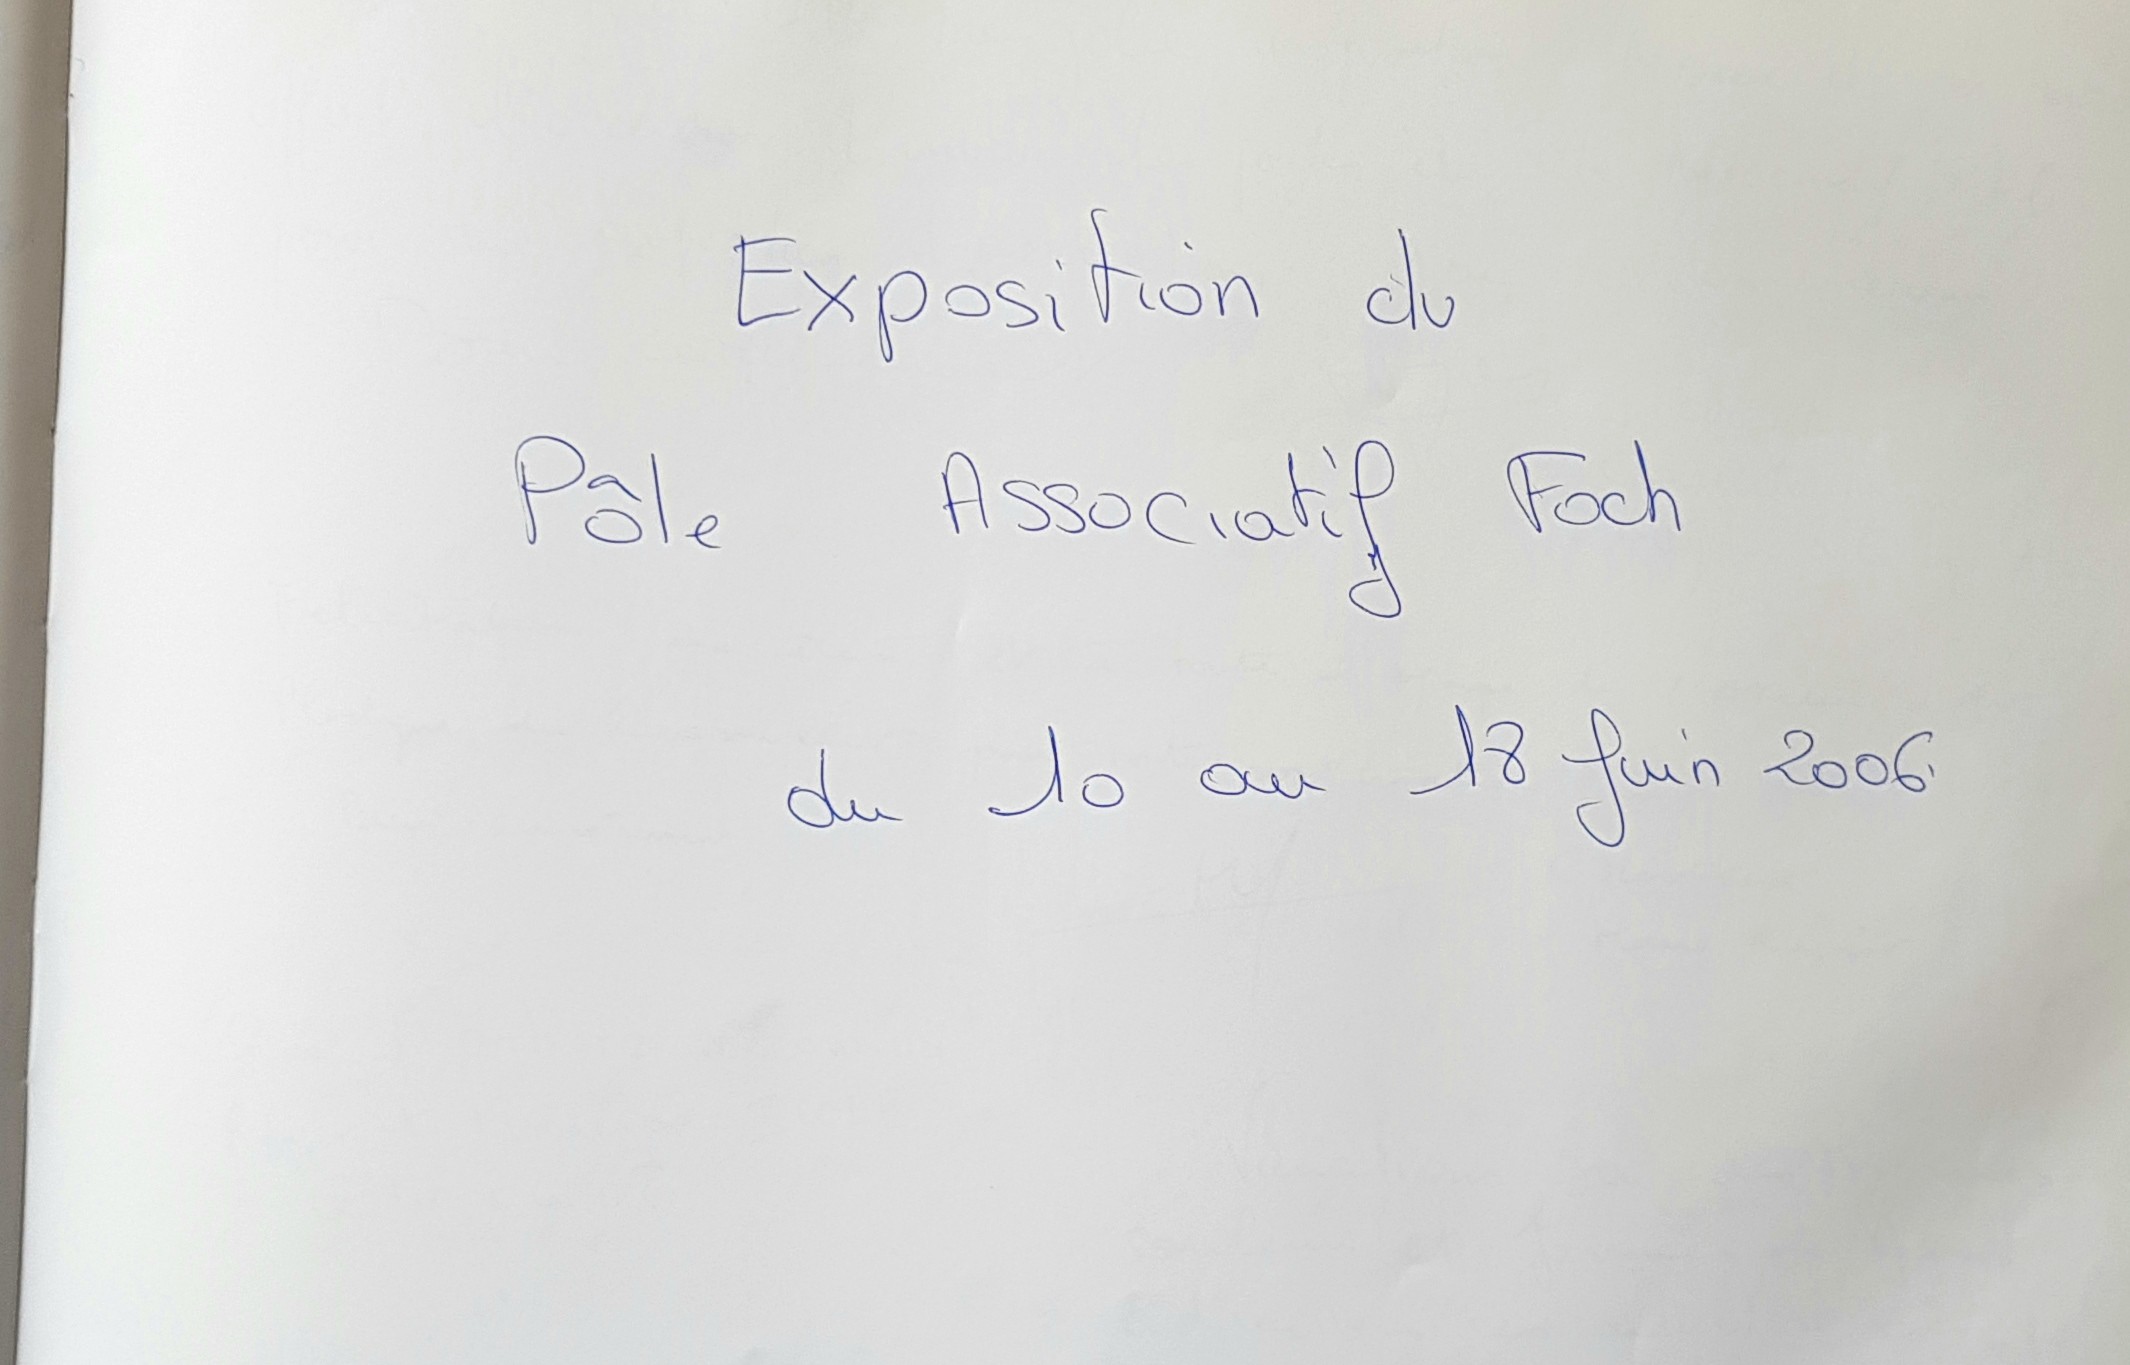 Exposition du
Pôle Associatif Foch
du 10 au 18 Juin 2006